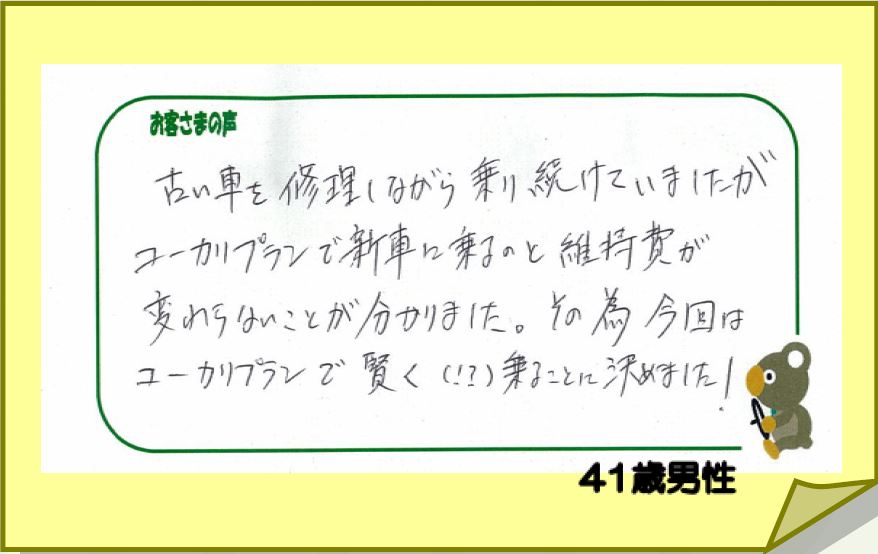 お客さまの声
古い車を修理しながら乗り続けていましたが
ユーカリプランで新車に乗るのと維持費が
変わらないことが分かりました。その為今回は
ユーカリプランで賢く(!?)乗ることに決めました!
41歳男性